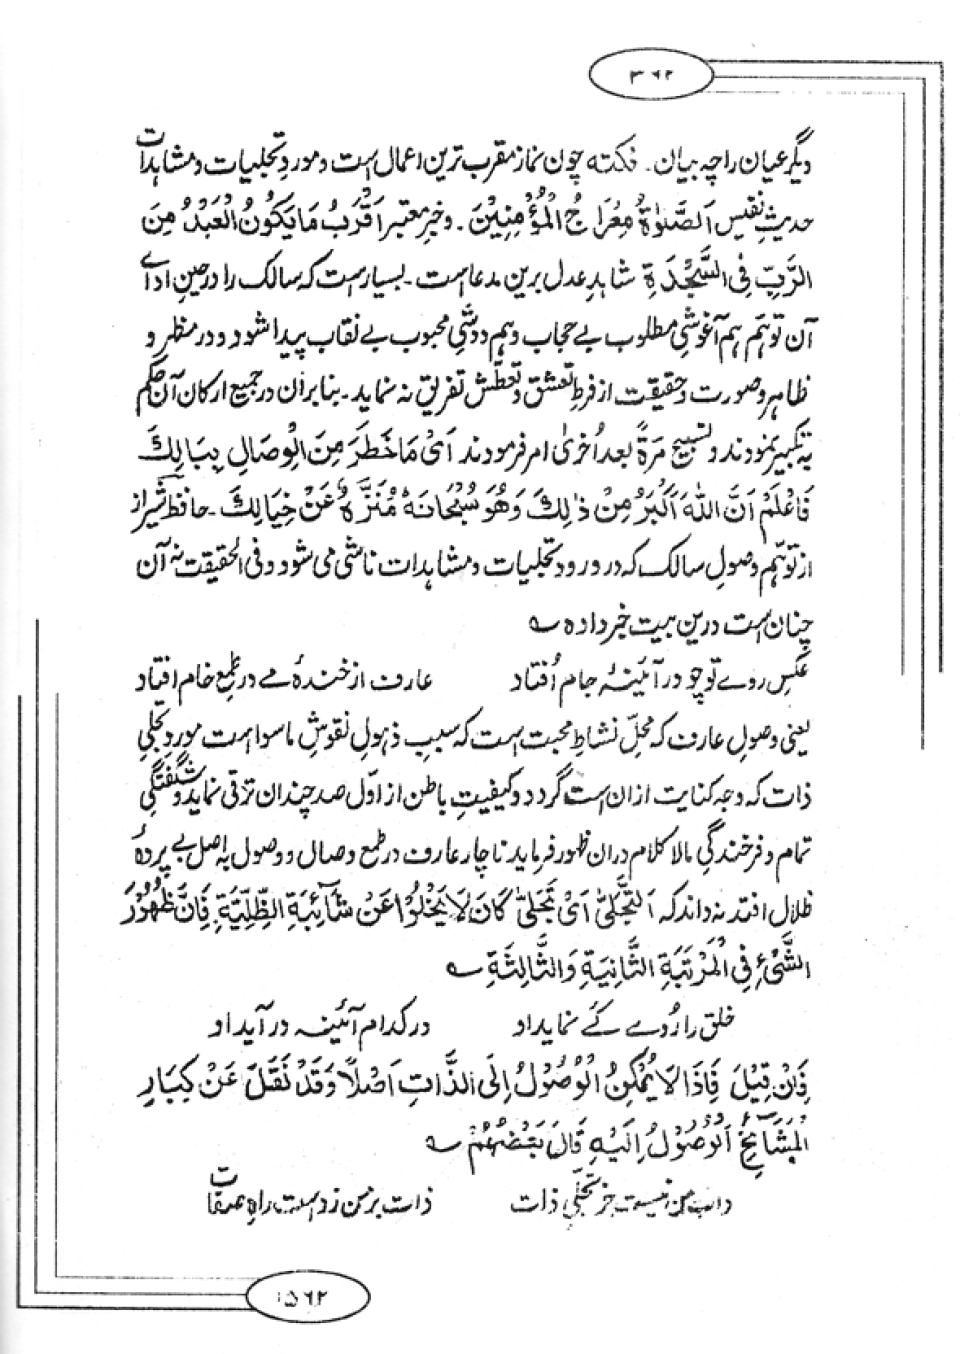 ۳۶۲
دیگر عیان را چه بیان۔ نکته چون نماز مقرب ترین اعمال است و مورد تجلیات و مشاهدات
حدیثِ نفیس اَلصَّلوٰةُ مِعْرَاجُ الْمُؤْمِنِیْنَ۔ و خبرِ معتبر اَقْرَبُ مَا یَکُوْنُ الْعَبْدُ مِنَ
الرَّبِّ فِی السَّجْدَةِ شاهدِ عدل برین مدعا است۔ بسیار است که سالک را در حین اداے
آن توہّم ہم آغوشیِ مطلوب بے حجاب وہم دوشیِ محبوب بے نقاب پیدا شود و در مظر و
ظاہر و صورت و حقیقت از فرطِ تعشق و تعطّش تفریق نہ نماید۔ بنا بران در جمیع ارکان آن حکم
بہ تکبیر نمودند و تسبیح مَرَةً بعد اُخریٰ امر فرمودند اَیْ مَا خَطَرَ مِنَ الْوِصَالِ بِبَالِكَ
فَاعْلَمْ اَنَّ اللّٰهَ اَکْبَرُ مِنْ ذٰلِكَ وَهُوَ سُبْحَانَهٗ مُنَزَّهٌ عَنْ خِیَالِكَ۔ حافظ شیراز
از توہّم وصولِ سالک که در ورود تجلیات و مشاہدات ناشی می شود و فی الحقیقت نہ آن
چنان است درین بیت خبر داده
عکسِ روے تو چو در آئینۂ جام اُفتاد عارف از خندۂ مے در طمعِ خام افتاد
یعنی وصولِ عارف که محلِّ نشاطِ محبت است که سببِ ذہولِ نقوشِ ما سوا است موردِ تجلیِ
ذات که وجہ کنایت ازان است گردد و کیفیتِ باطن از اوّل صد چندان ترقی نماید و شگفتگیِ
تمام و فرخندگیِ مالا کلام دران ظهور فرماید ناچار عارف در طمعِ وصال و وصول بہ اصل بے پردۂ
ظلال افتد نہ داند که اَلتَّجَلّیْ اَیْ تَجَلّیْ کَانَ لَا یَخْلُوْا عَنْ شَآئِبَةِ الظِّلِّیَّةِ فَاِنَّ ظُهُوْرَ
الشَّیْءِ فِی الْمَرْتَبَةِ الثَّانِیَةِ وَالثَّالِثَةِ
خلق را رُوے کَے نماید او در کدام آئینہ در آید او
فَاِنْ قِیْلَ فَاِذًا لَا یُمْکِنُ الْوُصُوْلُ اِلَی الذَّاتِ اَصْلًا وَ قَدْ نَقَلَ عَنْ کِبَارِ
الْمَشَآئِخِ الْوُصُوْلُ اِلَیْهِ قَالَ بَعْضُهُمْ
من نیست جز تجلّیِ ذات ذات بر من زد است راهِ صفات
۱۵۶۲